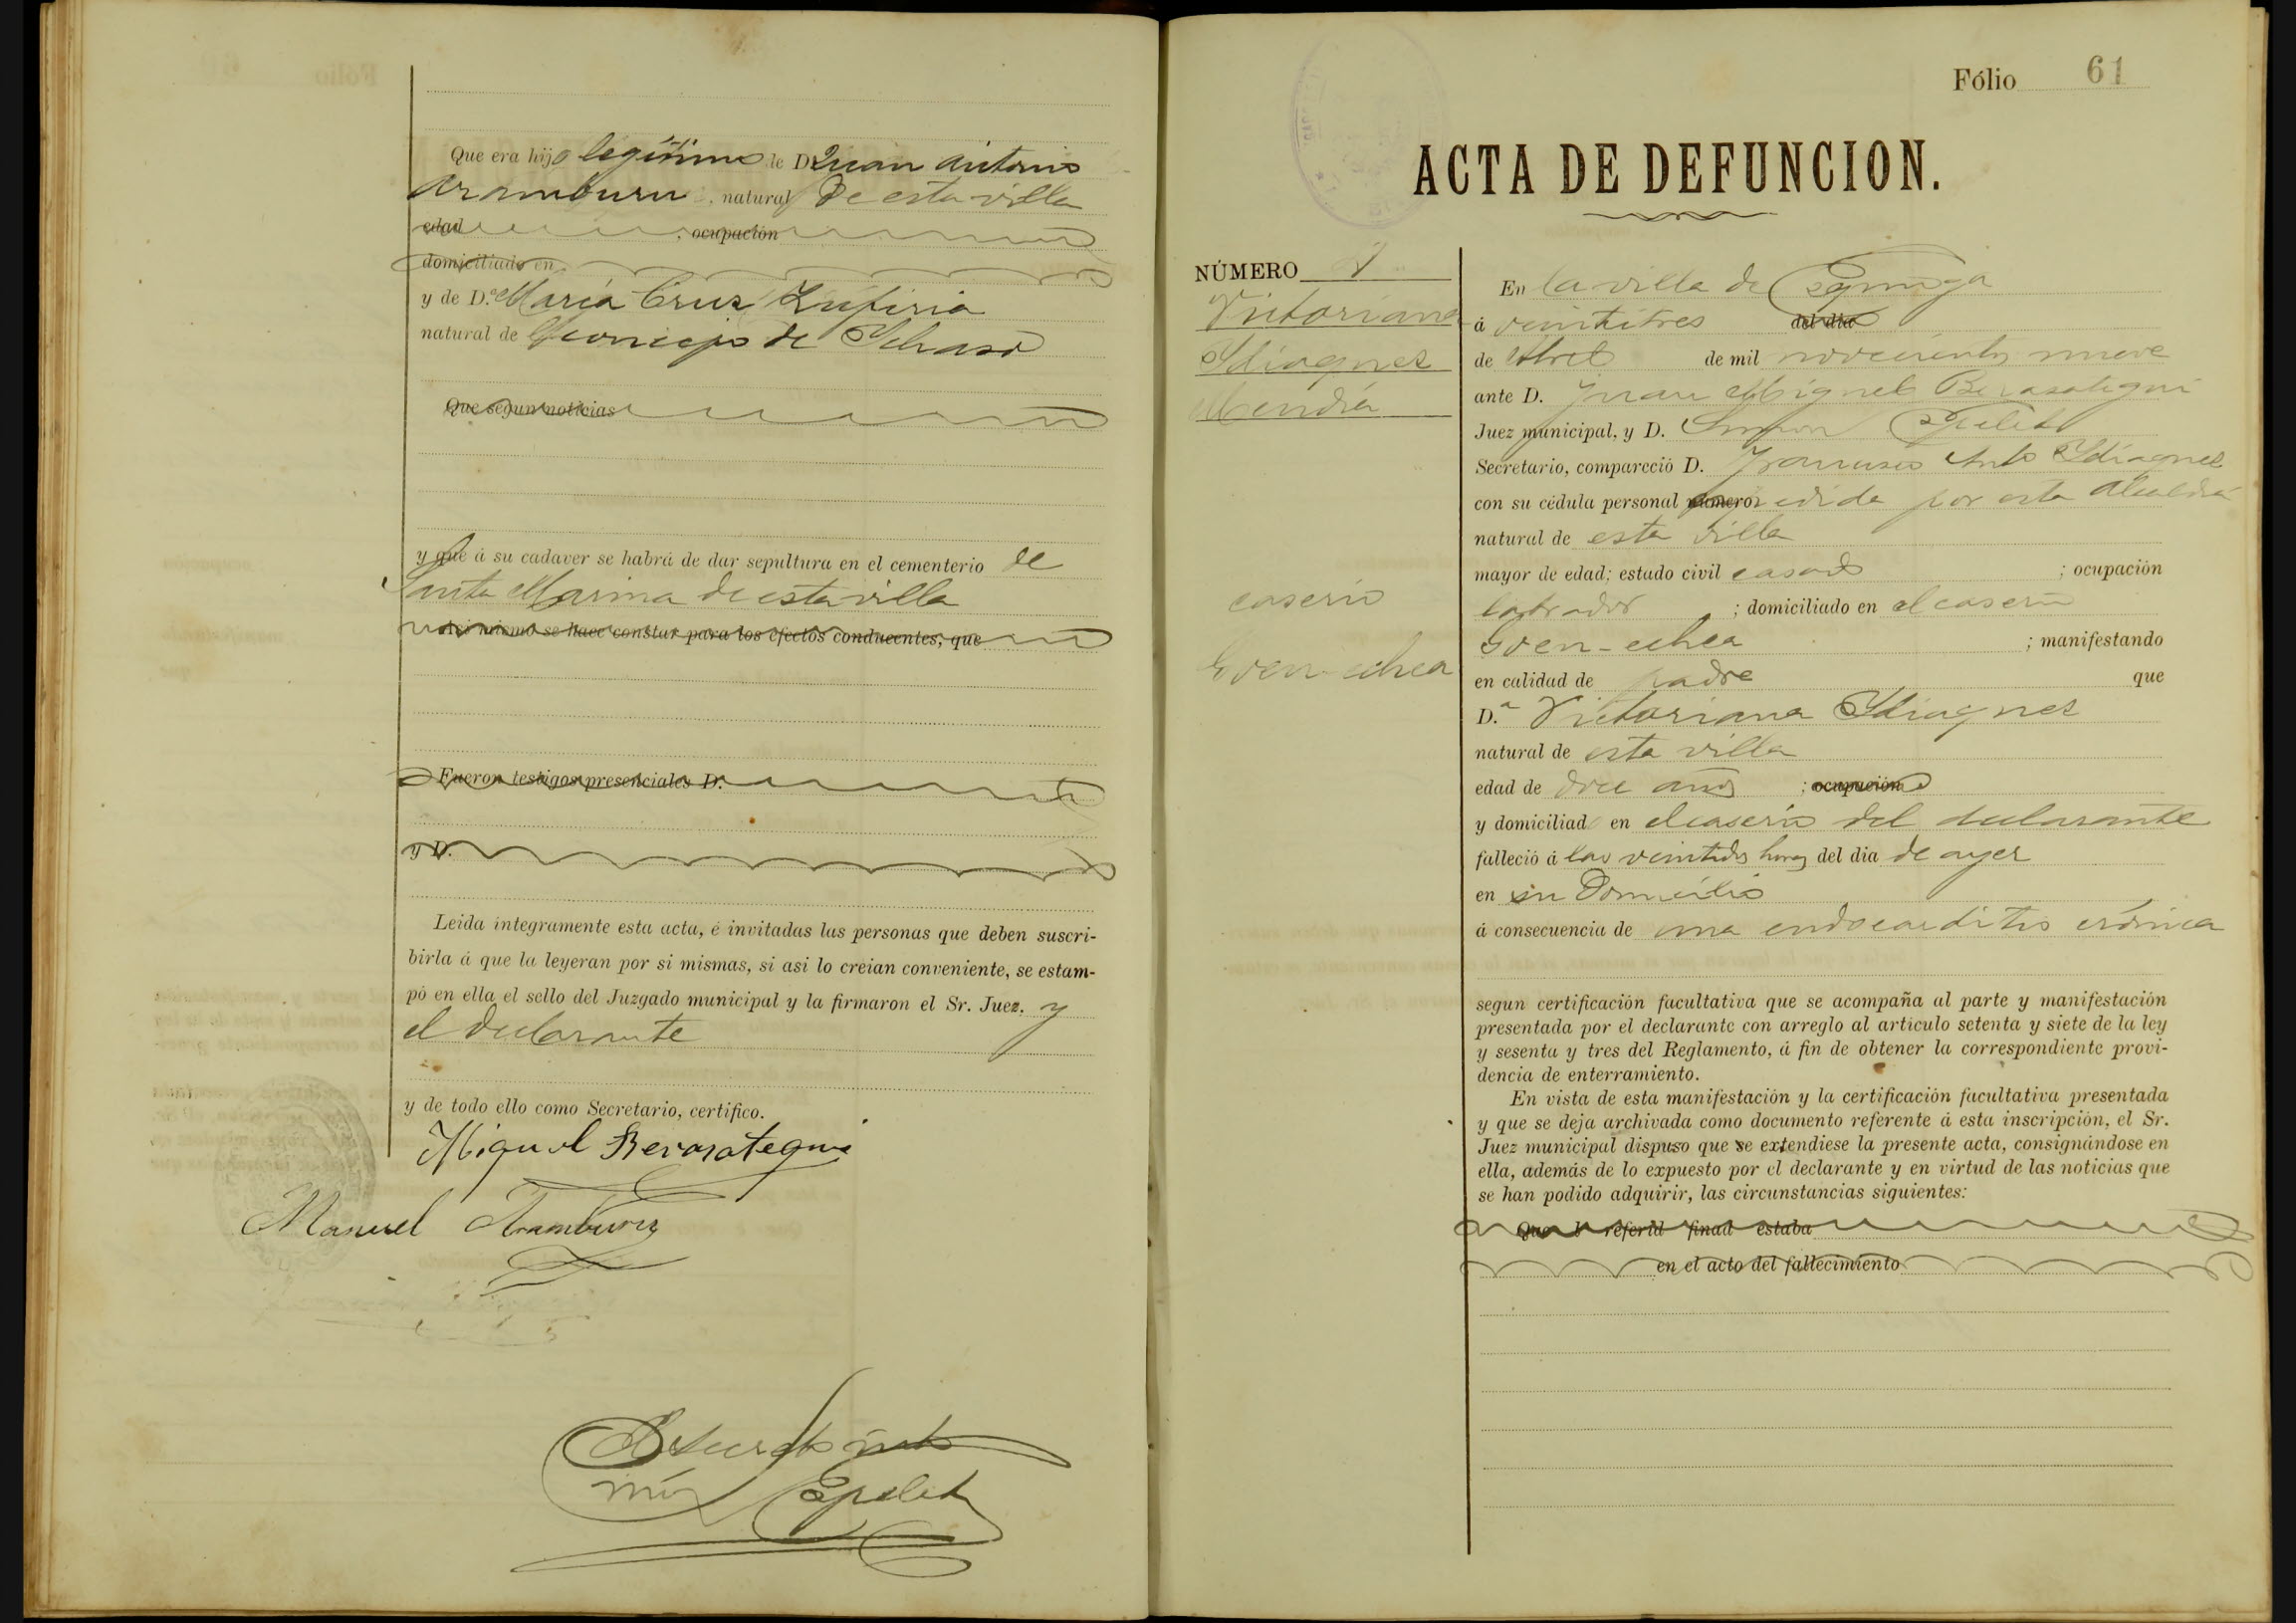 Que era hijo legítimo de D. Juan Antonio
Aramburu, natural de esta villa
edad ; ocupación
domiciliado en
y de D.ª María Cruz Zufiria
natural de concejo de
Que segun noticias
y que á su cadaver se habrá de dar sepultura en el cementerio de
Santa Marina de esta villa
Asi mismo se hace constar para los efectos conducentes, que
Fueron testigos presenciales D.
y D.
Leida integramente esta acta, é invitadas las personas que deben suscri-
birla á que la leyeran por si mismas, si asi lo creian conveniente, se estam-
pó en ella el sello del Juzgado municipal y la firmaron el Sr. Juez. y
el declarante
y de todo ello como Secretario, certifico.
Miguel Berasategui
Manuel Aramburu
Epelde
Fólio 61
ACTA DE DEFUNCION.
NÚMERO
Victoriana
Idiaquez
Mendia
caserio
Goen-echea
En la villa de
á veintitres del dia
de Abril de mil novecientos nueve
ante D. Juan Miguel Berasategui
Juez municipal, y D. Simon Epelde
Secretario, compareció D. Francisco Anto Idiaquez
con su cédula personal número expedida por esta Alcaldia
natural de esta villa
mayor de edad; estado civil casado ; ocupación
labrador ; domiciliado en el caserio
Goen-echea ; manifestando
en calidad de padre que
D.ª Victoriana Idiaquez
natural de esta villa
edad de doce años ; ocupación
y domiciliad en el caserio del declarante
falleció á las veintidos horas del dia de ayer
en su Domicilio
á consecuencia de una endocarditis crónica
segun certificación facultativa que se acompaña al parte y manifestación
presentada por el declarante con arreglo al artículo setenta y siete de la ley
y sesenta y tres del Reglamento, á fin de obtener la correspondiente provi-
dencia de enterramiento.
En vista de esta manifestación y la certificación facultativa presentada
y que se deja archivada como documento referente á esta inscripción, el Sr.
Juez municipal dispuso que se extendiese la presente acta, consignándose en
ella, además de lo expuesto por el declarante y en virtud de las noticias que
se han podido adquirir, las circunstancias siguientes:
Que l referid finad estaba
en el acto del fallecimiento